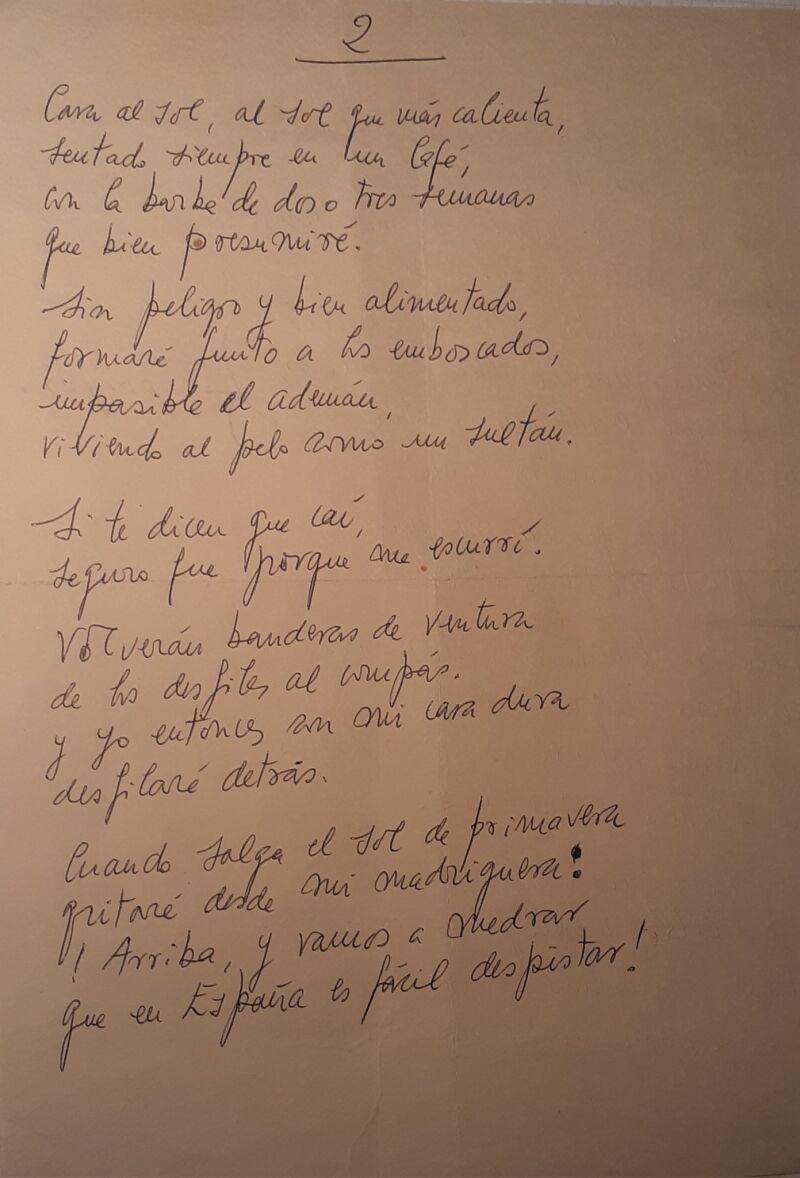 2
Cara al sol, al sol que más calienta,
sentado siempre en un Café,
con la barba de dos o tres semanas
que bien presumiré.
Sin peligro y bien alimentado,
formaré junto a los emboscados,
impasible el ademán,
viviendo al pelo como un sultán.
Si te dicen que caí,
seguro fue porque me escurrí.
Volverán banderas de ventura
de los desfiles al compás.
y yo entonces con mi cara dura
desfilaré detrás.
Cuando salga el sol de primavera
gritaré desde mi madriguera:
! Arriba, y vamos a medrar
que en España es fácil despistar!